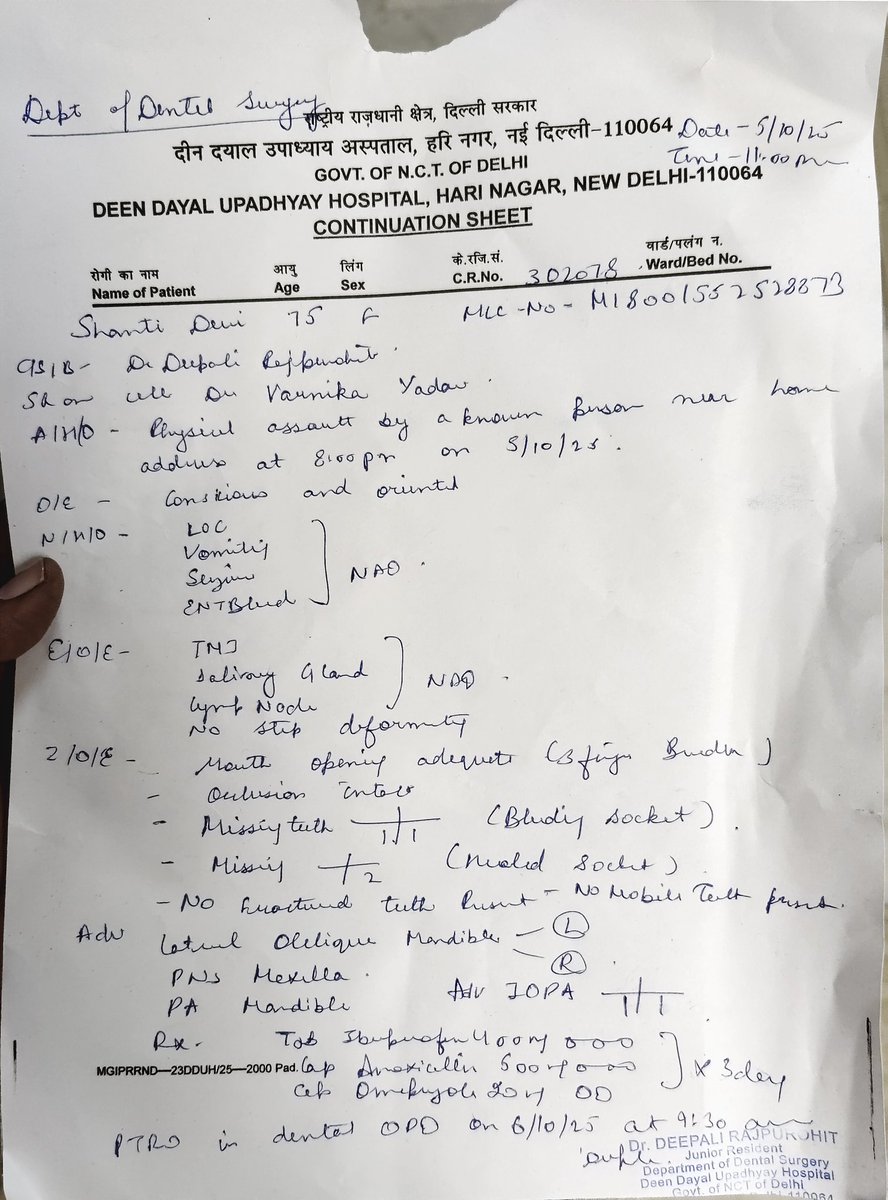 Dept of Dental Surgery
राष्ट्रीय राजधानी क्षेत्र, दिल्ली सरकार
दीन दयाल उपाध्याय अस्पताल, हरि नगर, नई दिल्ली-110064
Date - 5/10/25
Time - 11:00 pm
GOVT. OF N.C.T. OF DELHI
DEEN DAYAL UPADHYAY HOSPITAL, HARI NAGAR, NEW DELHI-110064
CONTINUATION SHEET
रोगी का नाम आयु लिंग के.रजि.सं. वार्ड/पलंग न.
Name of Patient Age Sex C.R.No. 302078 Ward/Bed No.
Shanti Devi 75 F MLC-No - M18001552528373
S/B - Dr Deepali Rajpurohit
Varnika Yadav
A/H/O - Physical assault by a known person near home
address at 8:00 pm on 5/10/25.
O/E - Conscious and oriented
N/H/O - LOC
Vomiting
Seizure
ENT Bleed
NAD
E/O/E - TMJ
Salivary Gland
Lymp Node
NAD
No step deformity
I/O/E - Mouth opening adequate (3 finger)
- Occlusion intact
- Missing teeth 1 1 (Bleeding socket).
- Missing 2 (Healed Socket)
- No fractured teeth Present - No Mobile Teeth present.
Adv Lateral Oblique Mandible - L
R
PNS Maxilla.
PA Mandible Adv IOPA 1 1
Rx. Tab Ibuprofen 400 mg
MGIPRRND—23DDUH/25—2000 Pad. Cap Amoxicillin 500 mg
Cap Omeprazole 20 mg OD
x 3 day
PTRO in dental OPD on 6/10/25 at 9:30 am
Dr. DEEPALI RAJPUROHIT
Junior Resident
Department of Dental Surgery
Deen Dayal Upadhyay Hospital
Govt. of NCT of Delhi